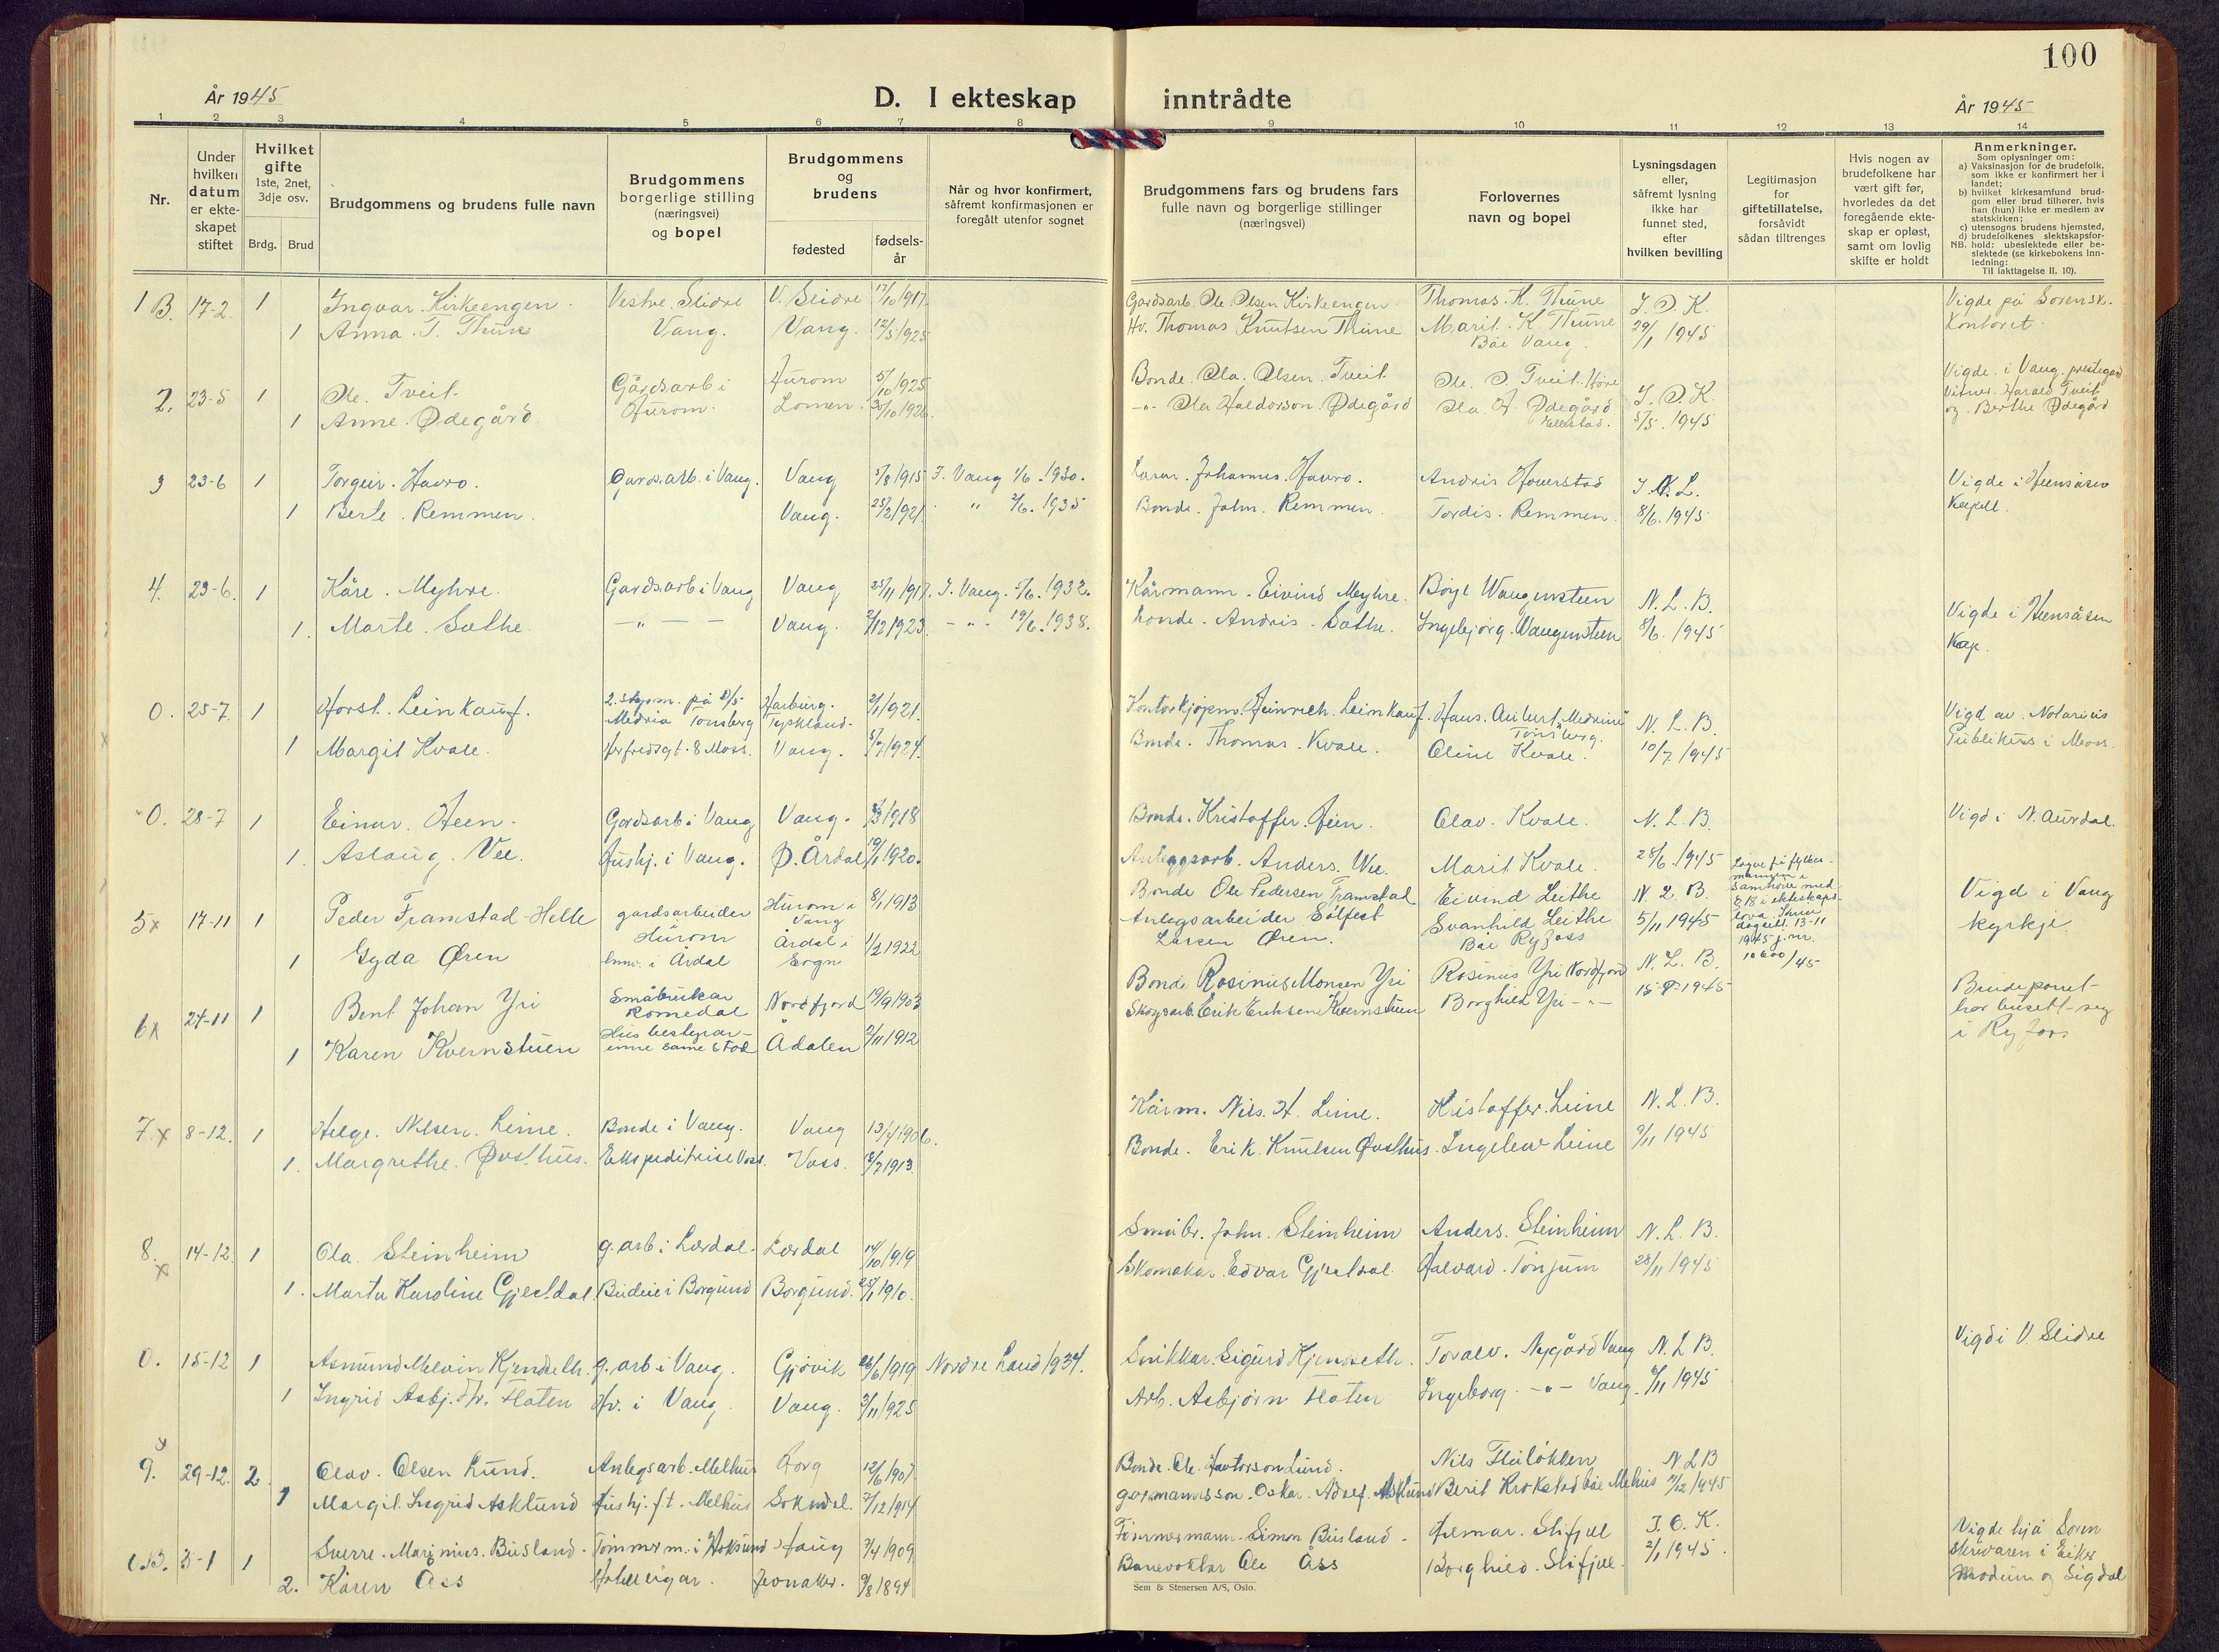 100
År 1945
D. I ekteskap inntrådte
År 1945
1 2 3 4 5 6 7 8 9 10 11 12 13 14
Nr.
Under
hvilken
datum
er ekte-
skapet
stiftet
Hvilket
gifte
1ste, 2net,
3dje osv.
Brdg. Brud
Brudgommens og brudens fulle navn
Brudgommens
borgerlige stilling
(næringsvei)
og bopel
Brudgommens
og
brudens
fødested
fødsels-
år
Når og hvor konfirmert,
såfremt konfirmasjonen er
foregått utenfor sognet
Brudgommens fars og brudens fars
fulle navn og borgerlige stillinger
(næringsvei)
Forlovernes
navn og bopel
Lysningsdagen
eller,
såfremt lysning
ikke har
funnet sted,
efter
hvilken bevilling
Legitimasjon
for
giftetillatelse,
forsåvidt
sådan tiltrenges
Hvis nogen av
brudefolkene har
vært gift før,
hvorledes da det
foregående ekte-
skap er opløst,
samt om lovlig
skifte er holdt
Anmerkninger.
Som oplysninger om:
a) Vaksinasjon for de brudefolk,
som ikke er konfirmert her i
landet;
b) hvilket kirkesamfund brud-
gom eller brud tilhører, hvis
han (hun) ikke er medlem av
statskirken;
c) utensogns brudens hjemsted,
d) brudefolkenes slektskapsfor-
NB. hold: ubeslektede eller be-
slektede (se kirkebokens inn-
ledning:
Til iakttagelse II. 10).
1 B. 17-2. 1 Ingvar Kirkeengen Vestre Slidre V. Slidre 17/10 1917 Gardsarb. Ole Olsen Kirkeengen Thomas K. Thune J. O. K. Vigde på Sorensk.
1 Anna T. Thune Vang. Vang. 12/5 1925 Hv. Thomas Knutsen Thune Marit K. Thune 29/1 1945 Kontoret
Bæ Vang.
2. 23-5 1 Ole Tveit Gårdsarb i Hurom 5/10 1925 Bonde Ola Olsen Tveit Ole O. Tveit Høre J. O. K. Vigde i Vang prestegard
1 Anne Ødegård Hurom. Lomen 30/10 1926 -"- Ola Haldorson Ødegård Ola H. Ødegård 5/5 1945 Vitner Harald Tveit
og Berthe Ødegård
3 23-6 1 Torgeir Havro. Gardsarb. i Vang. Vang 5/8 1915 I. Vang 1/6 1930. Johannes Havro. Andris Hoverstad J. N. L. Vigde i Heensåsen
1 Berte Remmen. Vang. 23/2 1921 " 2/6 1935 Bonde John Remmen Tordis Remmen 8/6 1945 Kapell.
4. 23-6. 1 Kåre Myhre. Gardsarb i Vang Vang 25/11 1917. I. Vang 5/6 1932. Kårmann Eivind Myhre. Børge Waugensteen N. L. B. Vigde i Heensåsen
1. Marte Sæthe. -"- Vang. 2/12 1923 -"- 19/6 1938. Bonde Andris Sæthe. Ingebjørg Waugensteen 8/6 1945 Kap.
0. 25-7. 1 Horst Leinkauf. 2. styrm. på Harburg. 2/1 1921. Kontorkjøpm. Heinrich Leinkauf. Hans Aubert "Medrina" N. L. B. Vigd av Notarius
Medria Tønsberg Tyskland. Tønsberg.
1 Margit Kvale. Moss. Vang. 5/7 1924. Bonde Thomas Kvale. Oline Kvale. 10/7 1945 Publikus i Moss.
0. 28-7 1 Einar Heen. Gardsarb i Vang Vang. 3/3 1918 Bonde Kristoffer Heen. Olav Kvale. N. L. B. Vigd i N. Aurdal.
1. Aslaug Vee. Hushj. i Vang. Ø. Årdal 19/1 1920. Anleggsarb. Anders Vee. Marit Kvale. 28/6 1945
5x 17-11 1 Peder Framstad-Helle gardsarbeider Hurom i 8/1 1913 Bonde Ole Pedersen Framstad Eivind Leithe N. L. B. Vigd i Vang
Hurom Vang
1 Gyda Øren i Årdal Årdal i Sogn 1/2 1922 Anlegsarbeider Solfest Larsen Øren. Svanhild Leithe Bæ Ryfoss 5/11 1945 kyrkje.
samhøve med § 18 i ekteskaps-
lova. dagsett 13-11
1945 j.nr. 10600/45
6x 24-11 1 Bent Johan Yri Småbrukar Romedal Nordfjord 19/9 1903 Bonde Rosinus Monsen Yri Rosinus Yri Nordfjord N. L. B. Brudeparet
1 Karen Kvernstuen Husbestyrar-inne same stad Ådalen 2/11 1912 Skogsarb. Erik Eriksen Kvernstuen Borghild Yri -"- 15-9-1945 har busett seg
i Ryfoss
7.x 8-12. 1 Helge Nilsen Leine. Bonde i Vang. Vang 13/4 1906. Kårm. Nils H. Leine. Kristoffer Leine N. L. B.
1. Margrethe Øvsthus. Ekspeditrise Voss. Voss. 2/7 1913. Bonde Erik Knutsen Øvsthus. Ingeleiv Leine 9/11 1945
8. x 14-12. 1 Ola Steinheim g. arb i Lærdal. Lærdal 14/10 1919 Småbr. John Steinheim Anders Steinheim N. L. B.
1. Marta Karoline Gjestdal. Budeie i Borgund Borgund. 25/1 1910. Skomakar Edvar Gjestdal. Halvard Tønjum 28/11 1945
0. 15-12 1 Asmund Melvin Kjendseth. g. arb i Vang. Gjøvik 23/6 1919 Nordre Land 1934. Snikkar. Sigurd Kjendseth. Toralv Nygård Vang N. L. B. Vigd i V. Slidre
1 Ingrid Asbj. Fløten Hv. i Vang. Vang. 3/11 1925 Arb. Asbjørn Fløten Ingeborg -"- Vang. 9/11 1945
x 9. 29-12. 2 Olav Olsen Lund. Anlegsarb. Melhus 12/6 1907 Bonde Ole Lund. Nils N L B
1 Margit Ingrid Asklund hushj. Melhus Soknedal. 7/12 1914 Oskar Adolf Asklund Berit Krokstad bæ Melhus 7/12 1945
3-1 1 Sverre Marinius Busland. Tømmerm. i Hoksund Haug 7/4 1909 Tømmermann Simon Busland. Hilmar Slifjell J. O. K. Vigde hjå Soren
2. Karen Åss Hotelleigar. Jevnaker. 9/8 1894 Banevoktar Ole Åss Borghild Slifjell 2/1 1945. skrivaren i Eiker
Modum og Sigdal
Sem & Stenersen A/S, Oslo.